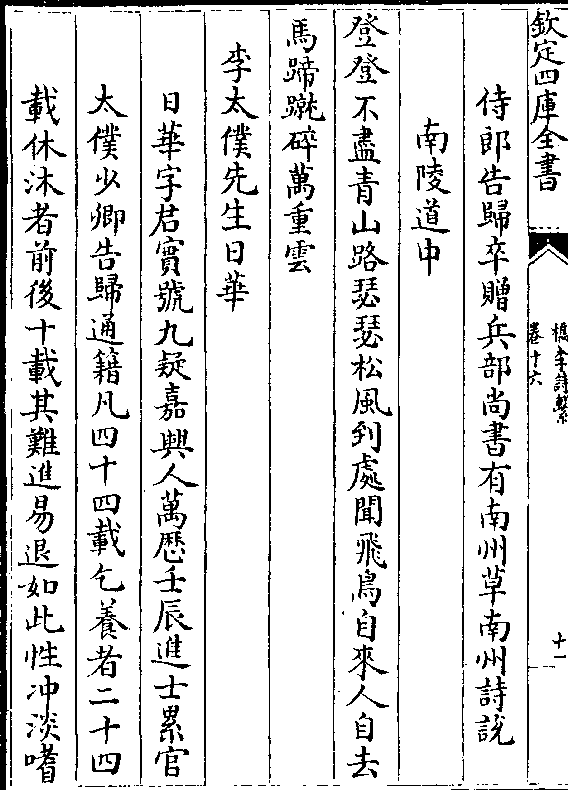 欽定四庫全書
檇李詩繫
卷十六
十一
侍郎告歸卒贈兵部尚書有南州草南州詩説
南陵道中
登登不盡青山路瑟瑟松風到處聞飛鳥自來人自去
馬蹄蹴碎萬重雲
李太僕先生日華
日華字君實號九疑嘉興人萬厯壬辰進士累官
太僕少卿告歸通籍凡四十四載乞養者二十四
載休沐者前後十載其難進易退如此性冲淡嗜